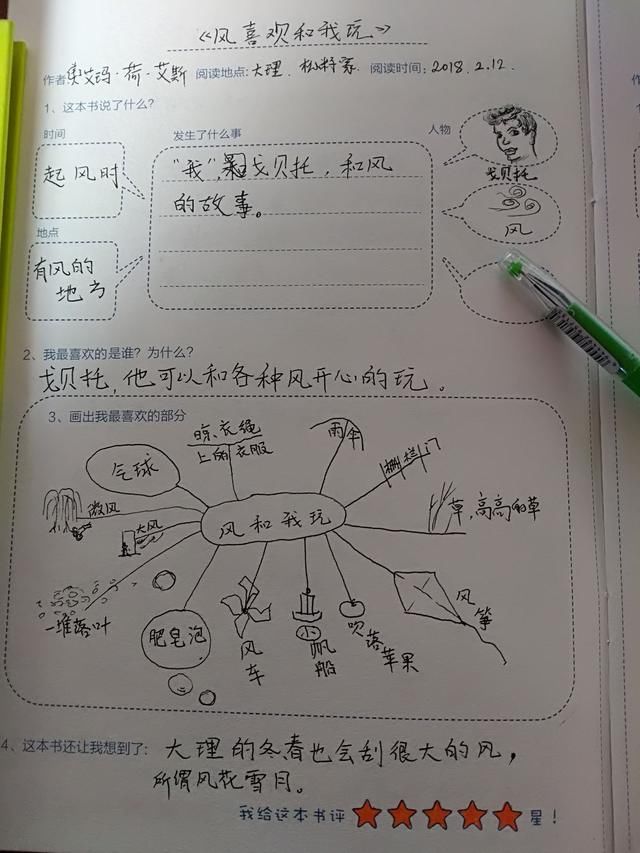 《风喜欢和我玩》
作者: 玛·荷·艾斯 阅读地点: 大理. 阅读时间: 2018.2.12.
1、这本书说了什么?
时间 发生了什么事 人物
起风时
"我" 戈贝托, 和风
的故事。
戈贝托
风
地点
有风的
地方
2、我最喜欢的是谁? 为什么?
戈贝托, 他可以和各种风开心的玩。
3、画出我最喜欢的部分
晾衣绳
上的衣服
雨伞
栅栏门
气球
微风
大风
风和我玩
草, 高高的草
一堆落叶
肥皂泡
风车
小帆船
吹落苹果
风筝
4、这本书还让我想到了: 大理的冬春也会刮很大的风,
所谓风花雪月。
我给这本书评 ★★★★★ 星!